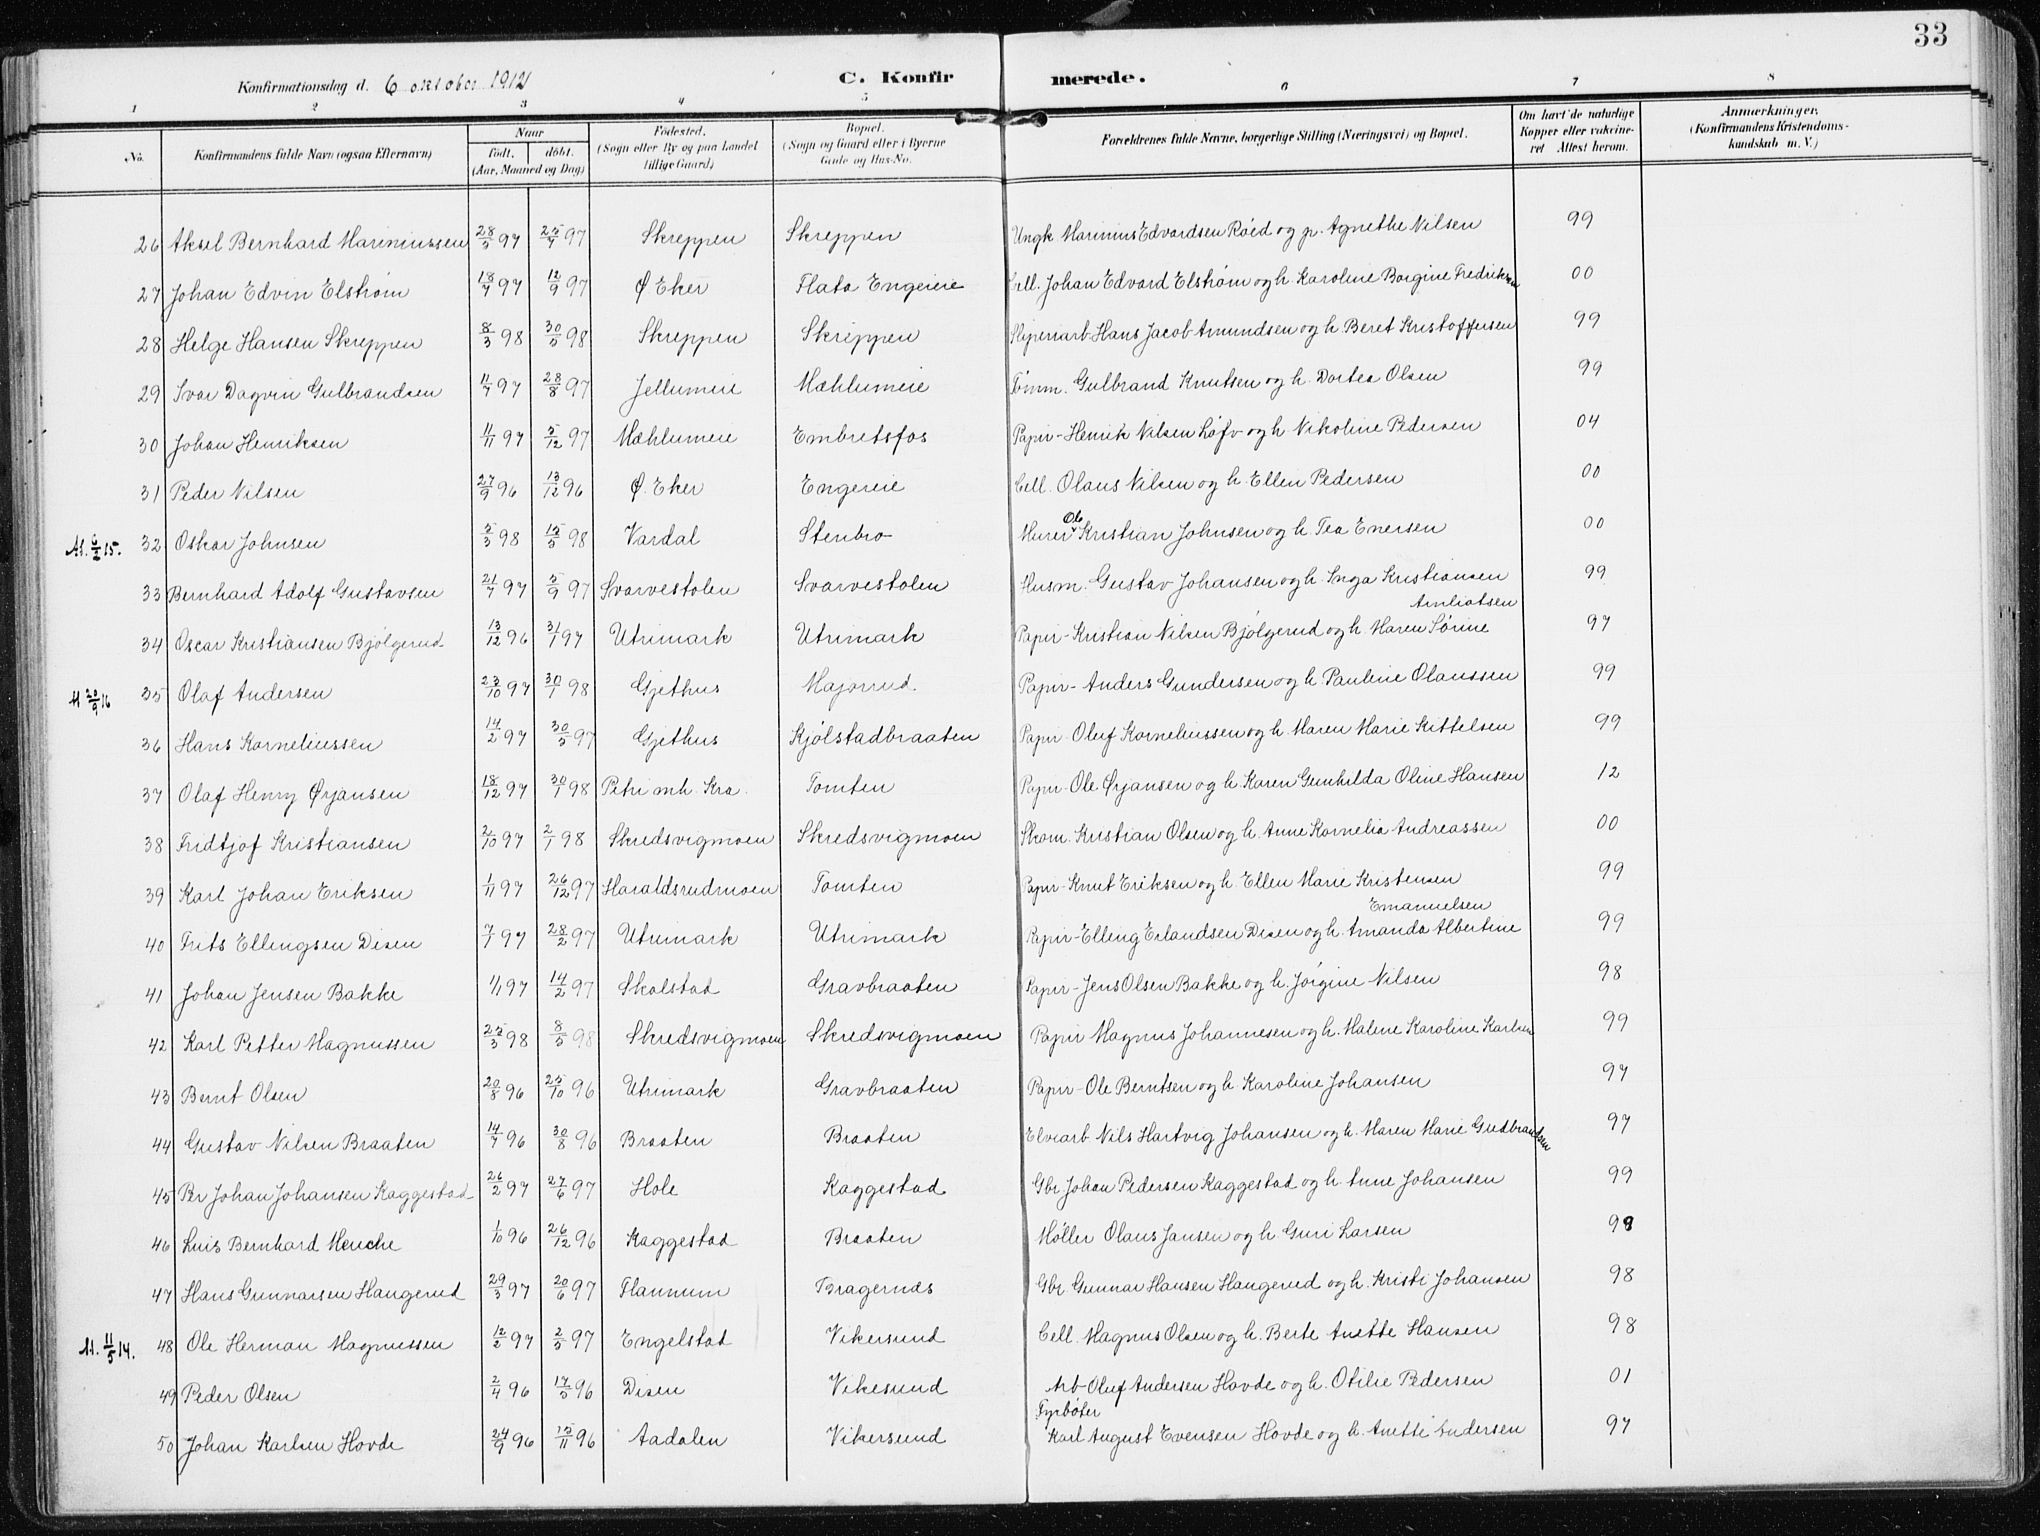 33
Konfirmationsdag d. 6 oktober 1912
C. Konfirmerede.
1 2 3 4 5 6 7 8
No. Konfirmandens fulde Navn (ogsaa Efternavn) Naar født. døbt. (Aar, Maaned og Dag) Fødested. (Sogn eller By og paa Landet tillige Gaard) Bopæl. (Sogn og Gaard eller i Byerne Gade og Hus-No. Forældrenes fulde Navne, borgerlige Stilling (Næringsvei) og Bopæl. Om havt de naturlige Kopper eller vakcineret Attest herom. Anmærkninger. (Konfirmandens Kristendomskundskab m.V.)
26 Aksel Bernhard Mariniussen 28/5 97 25/7 97 Skreppen Skreppen Ungk. Marinius Edvardsen Røed og p. Agnethe Nilsen 99
27 Johan Edvin Elstrøm 18/7 97 12/9 97 Ø Eker Flata Engereie Cell. Johan Edvard Elstrøm og h. Karoline Borgine Fredriksen 00
28 Helge Hansen Skreppen 8/3 98 30/5 98 Skreppen Skreppen Sliperiarb Hans Jacob Amundsen og h. Beret Kristoffersen 99
29 Ivar Dagvin Gulbrandsen 11/7 97 28/8 97 Jellumeie Mæhlumeie Tømm. Gulbrand Knutsen og h. Dortea Olsen 99
30 Johan Henriksen 11/11 97 5/12 97 Mæhlumeie Embretsfos Papir- Henrik Nilsen Løfv og h Nikoline Pedersen 04
31 Peder Nilsen 27/9 96 13/12 96 Ø. Eker Engereie Cell. Olaus Nilsen og h. Ellen Pedersen 00
At. 6/2 15. 32 Oskar Johnsen 5/3 98 15/5 98 Vardal Stenbro Murer Ole Kristian Johnsen og h. Tea Enersen 00
33 Bernhard Adolf Gustavsen 21/7 97 5/9 97 Svarvestolen Svarvestolen Husm. Gustav Johansen og h. Inga Kristiansen 99
34 Oscar Kristiansen Bjølgerud 13/12 96 31/1 97 Utrimark Utrimark Papir- Kristian Nilsen Bjølgerud og h. Maren Sørine Amliotsen 97
At 20/9 16 35 Olaf Andersen 23/10 97 30/1 98 Gjethus Majorrud. Papir- Anders Gundersen og h. Pauline Olaussen 99
36 Hans Korneliussen 14/2 97 30/5 97 Gjethus Kjølstadbraaten Papir- Oluf Korneliussen og h. Maren Marie Kittelsen 99
37 Olaf Henry Ørjansen 18/12 97 30/1 98 Petri mh. Kra. Tomten Papir- Ole Ørjansen og h. Karen Gunhilda Oline Hansen 12
38 Fridtjof Kristiansen 2/10 97 2/1 98 Skredsvigmoen Skredsvigmoen Skom. Kristian Olsen og h. Anne Kornelia Andreassen 00
39 Karl Johan Eriksen 1/11 97 26/12 97 Haraldsrudmoen Tomten Papir- Knut Eriksen og h. Ellen Marie Kristensen 99
40 Frits Ellingsen Disen 7/1 97 28/2 97 Utrimark Utrimark Papir- Elling Erlandsen Disen og h. Amanda Albertine Emanuelsen 99
41 Johan Jensen Bakke 1/1 97 14/2 97 Skalstad Gravbraaten Papir- Jens Olsen Bakke og h. Jørgine Nilsen 98
42 Karl Petter Magnussen 25/3 98 8/5 98 Skredsvigmoen Skredsvigmoen Papir Magnus Johannesen og h. Malene Karoline Karlsen 99
43 Bernt Olsen 20/8 96 25/10 96 Utrimark Gravbraaten Papir- Ole Berntsen og h. Karoline Johansen 97
44 Gustav Nilsen Braaten 14/7 96 30/8 96 Braaten Braaten Elvearb Nils Hartvig Johansen og h. Maren Marie Gudbrandsen 97
45 Per Johan Johansen Kaggestad 26/2 97 27/6 97 Hole Kaggestad Gbr Johan Pedersen Kaggestad og h. Anne Johansen 99
46 Luis Bernhard Menche 1/10 96 26/12 96 Kaggestad Braaten Møller Olaus Jansen og h Guri Larsen 98
47 Hans Gunnarsen Haugerud 29/3 97 20/6 97 Flannum Bragernæs Gbr. Gunnar Hansen Haugerud og h. Kristi Johansen 98
At. 11/5 14. 48 Ole Herman Magnussen 12/2 97 2/5 97 Engelstad Vikersund Cell. Magnus Olsen og h. Berte Anette Hansen 98
49 Peder Olsen 2/4 96 17/5 96 Disen Vikesund Arb- Oluf Andersen Hovde og h. Otilie Pedersen 01
50 Johan Karlsen Hovde 24/9 96 15/11 96 Aadalen Vikersund Fyrbøter Karl August Evensen Hovde og h. Anette Andersen 97